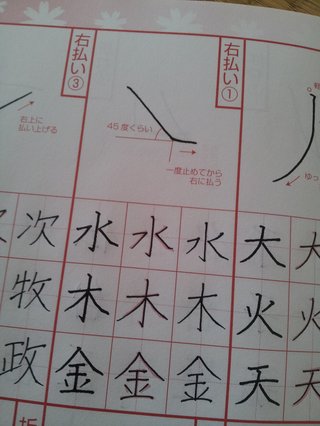 ゆっ
大 大
火 火
天 天
右払い①
45度くらい
一度止めてから
右に払う
水 水 水
木 木 木
金 金 金
右払い③
右上に
払い上げる
次
牧
政